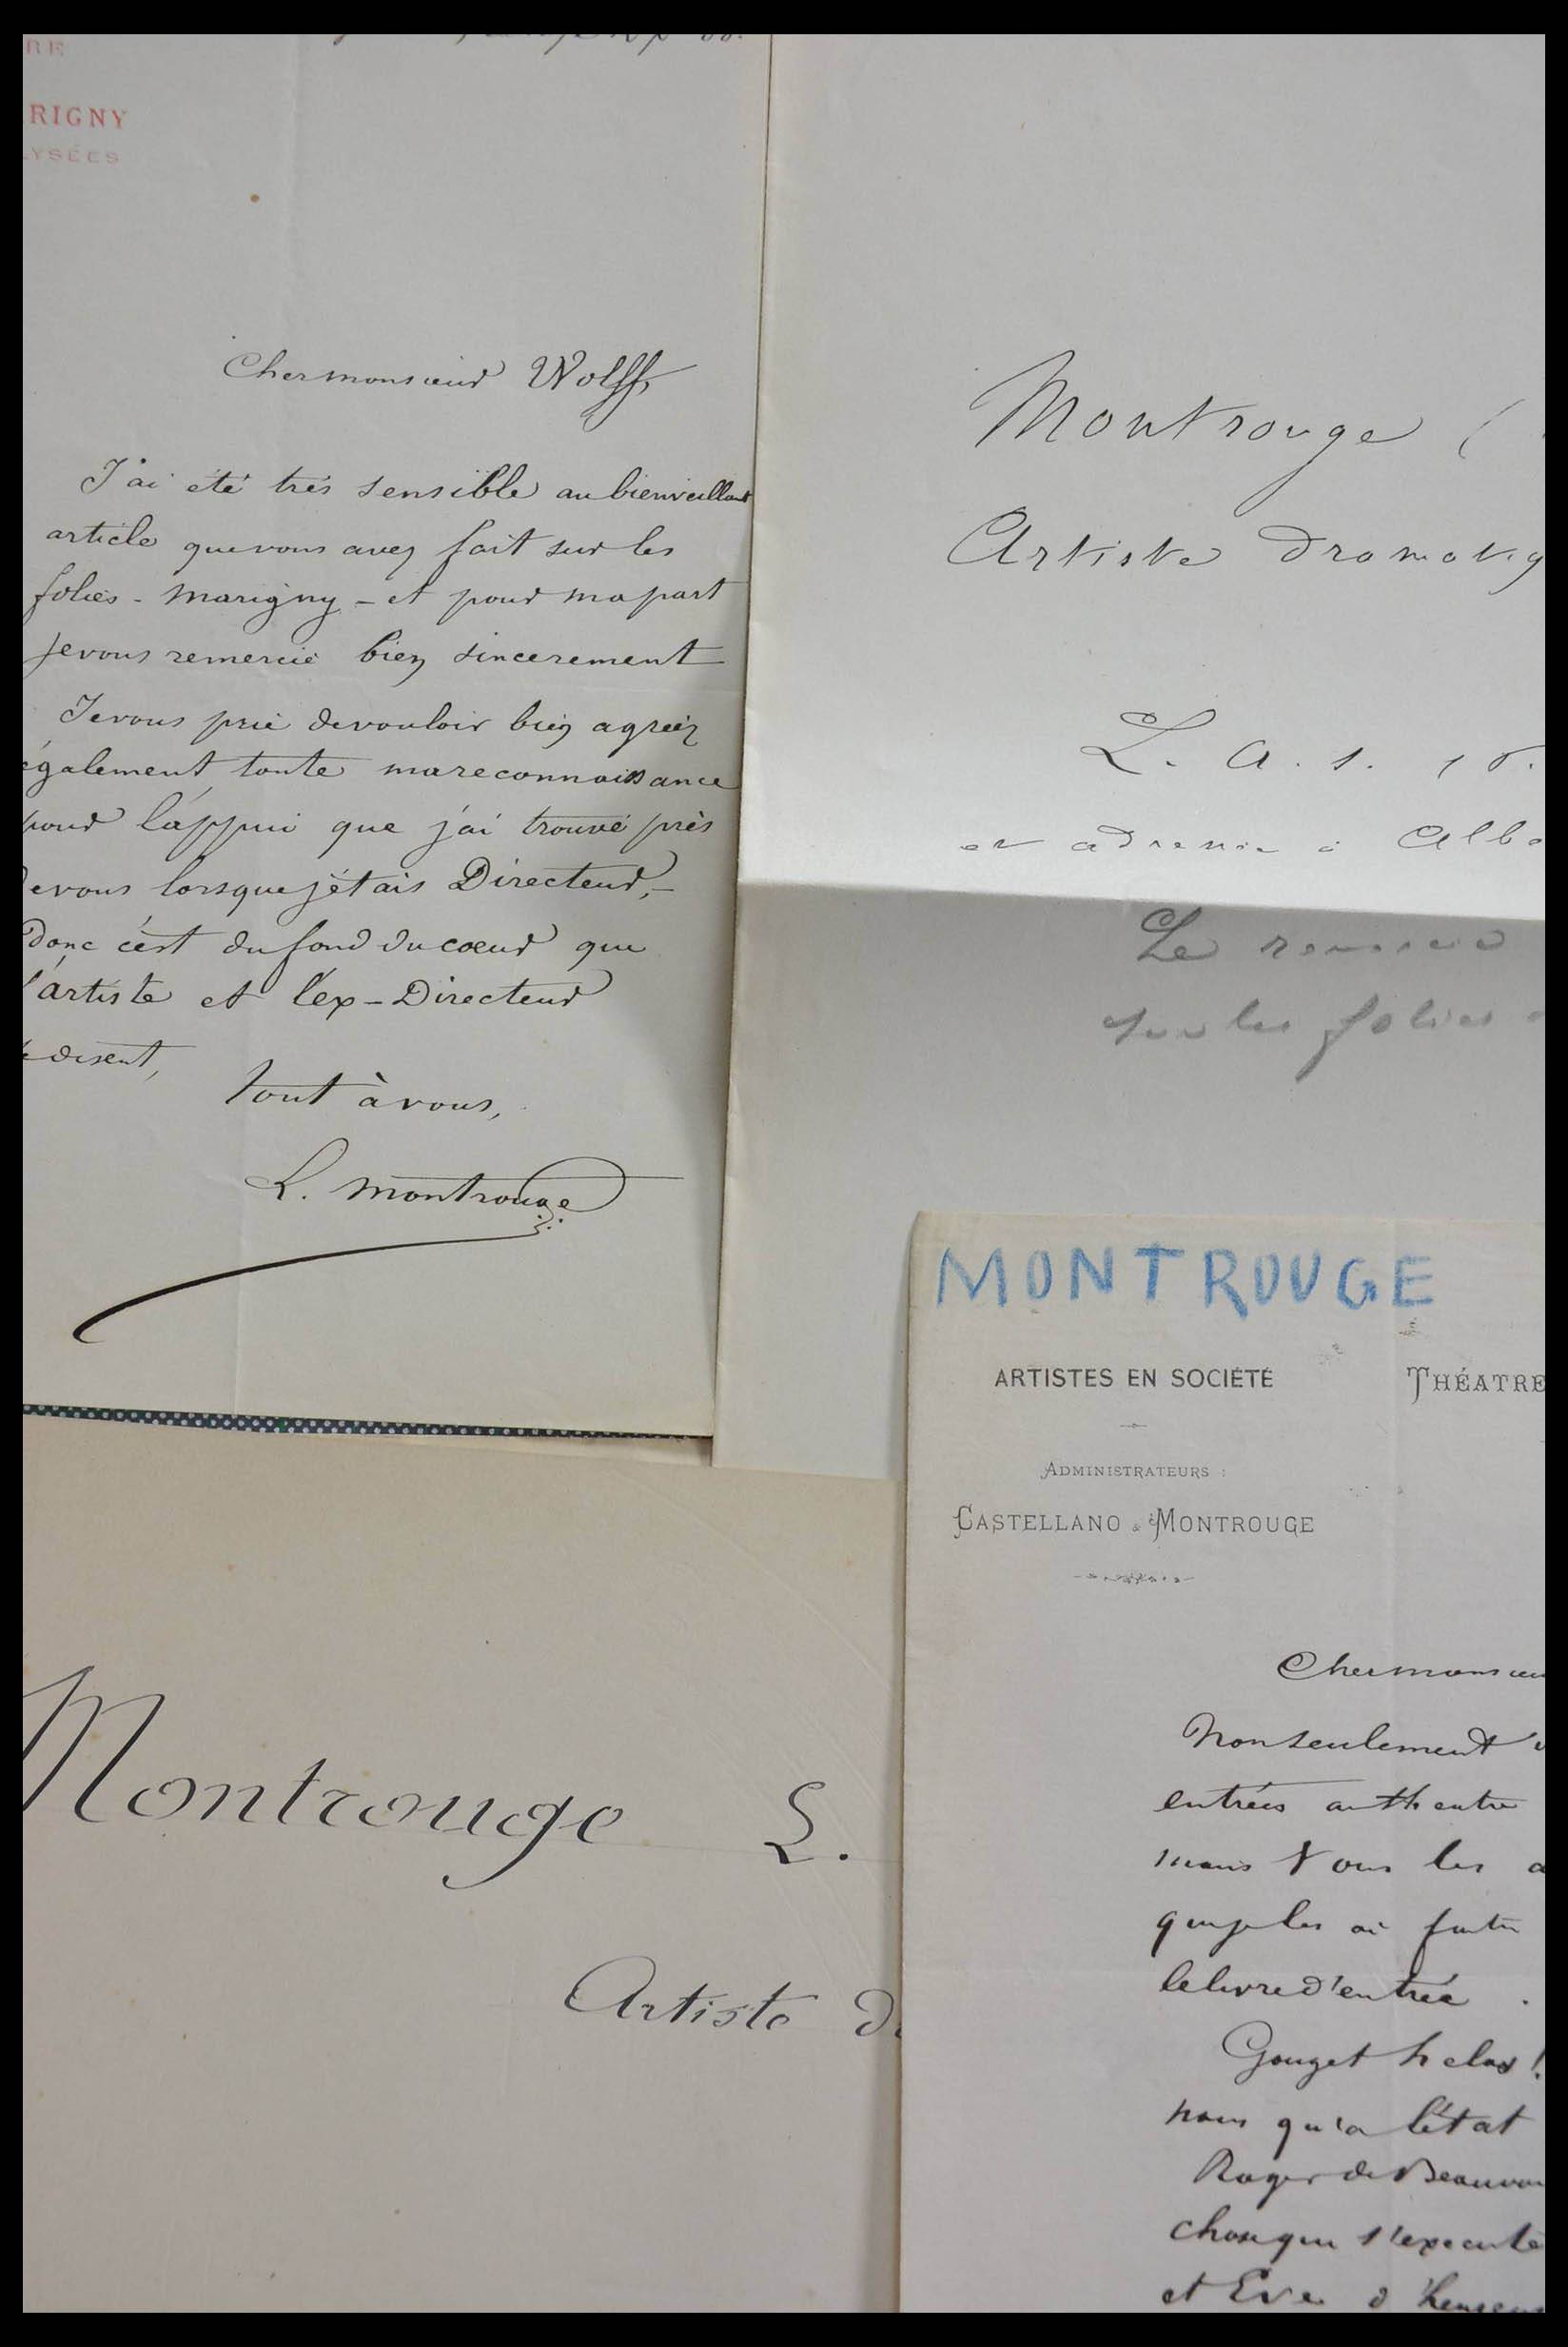 RE
RIGNY
LYSÉES
Cher monsieur Wolff,
J'ai été très sensible au bienveillant
article que vous avez fait sur les
folies - marigny - et pour ma part
je vous remercie bien sincerement
Je vous prie de vouloir bien agréer
également toute ma reconnaissance
pour l'appui que j'ai trouvé près
de vous lorsque j'étais Directeur, -
Donc c'est du fond du coeur que
l'artiste et l'ex-Directeur
disent,
tout à vous,
L. Montrouge
Montrouge (
Artiste dramatiq
L. a. s.
et adresse à Alb
Le remercie
sur les folies
MONTROUGE
ARTISTES EN SOCIÉTÉ
THÉATRE
ADMINISTRATEURS :
CASTELLANO & MONTROUGE
Cher monsieu
Non seulement v
entrées au théatre
mais vous les a
que je les ai faites
le livre d'entrée .
Gouget helas !
nous qu'a l'état
Roger de Beauvoi
chose qui s'execute
et Eve d'
Montrouge L.
Artiste d